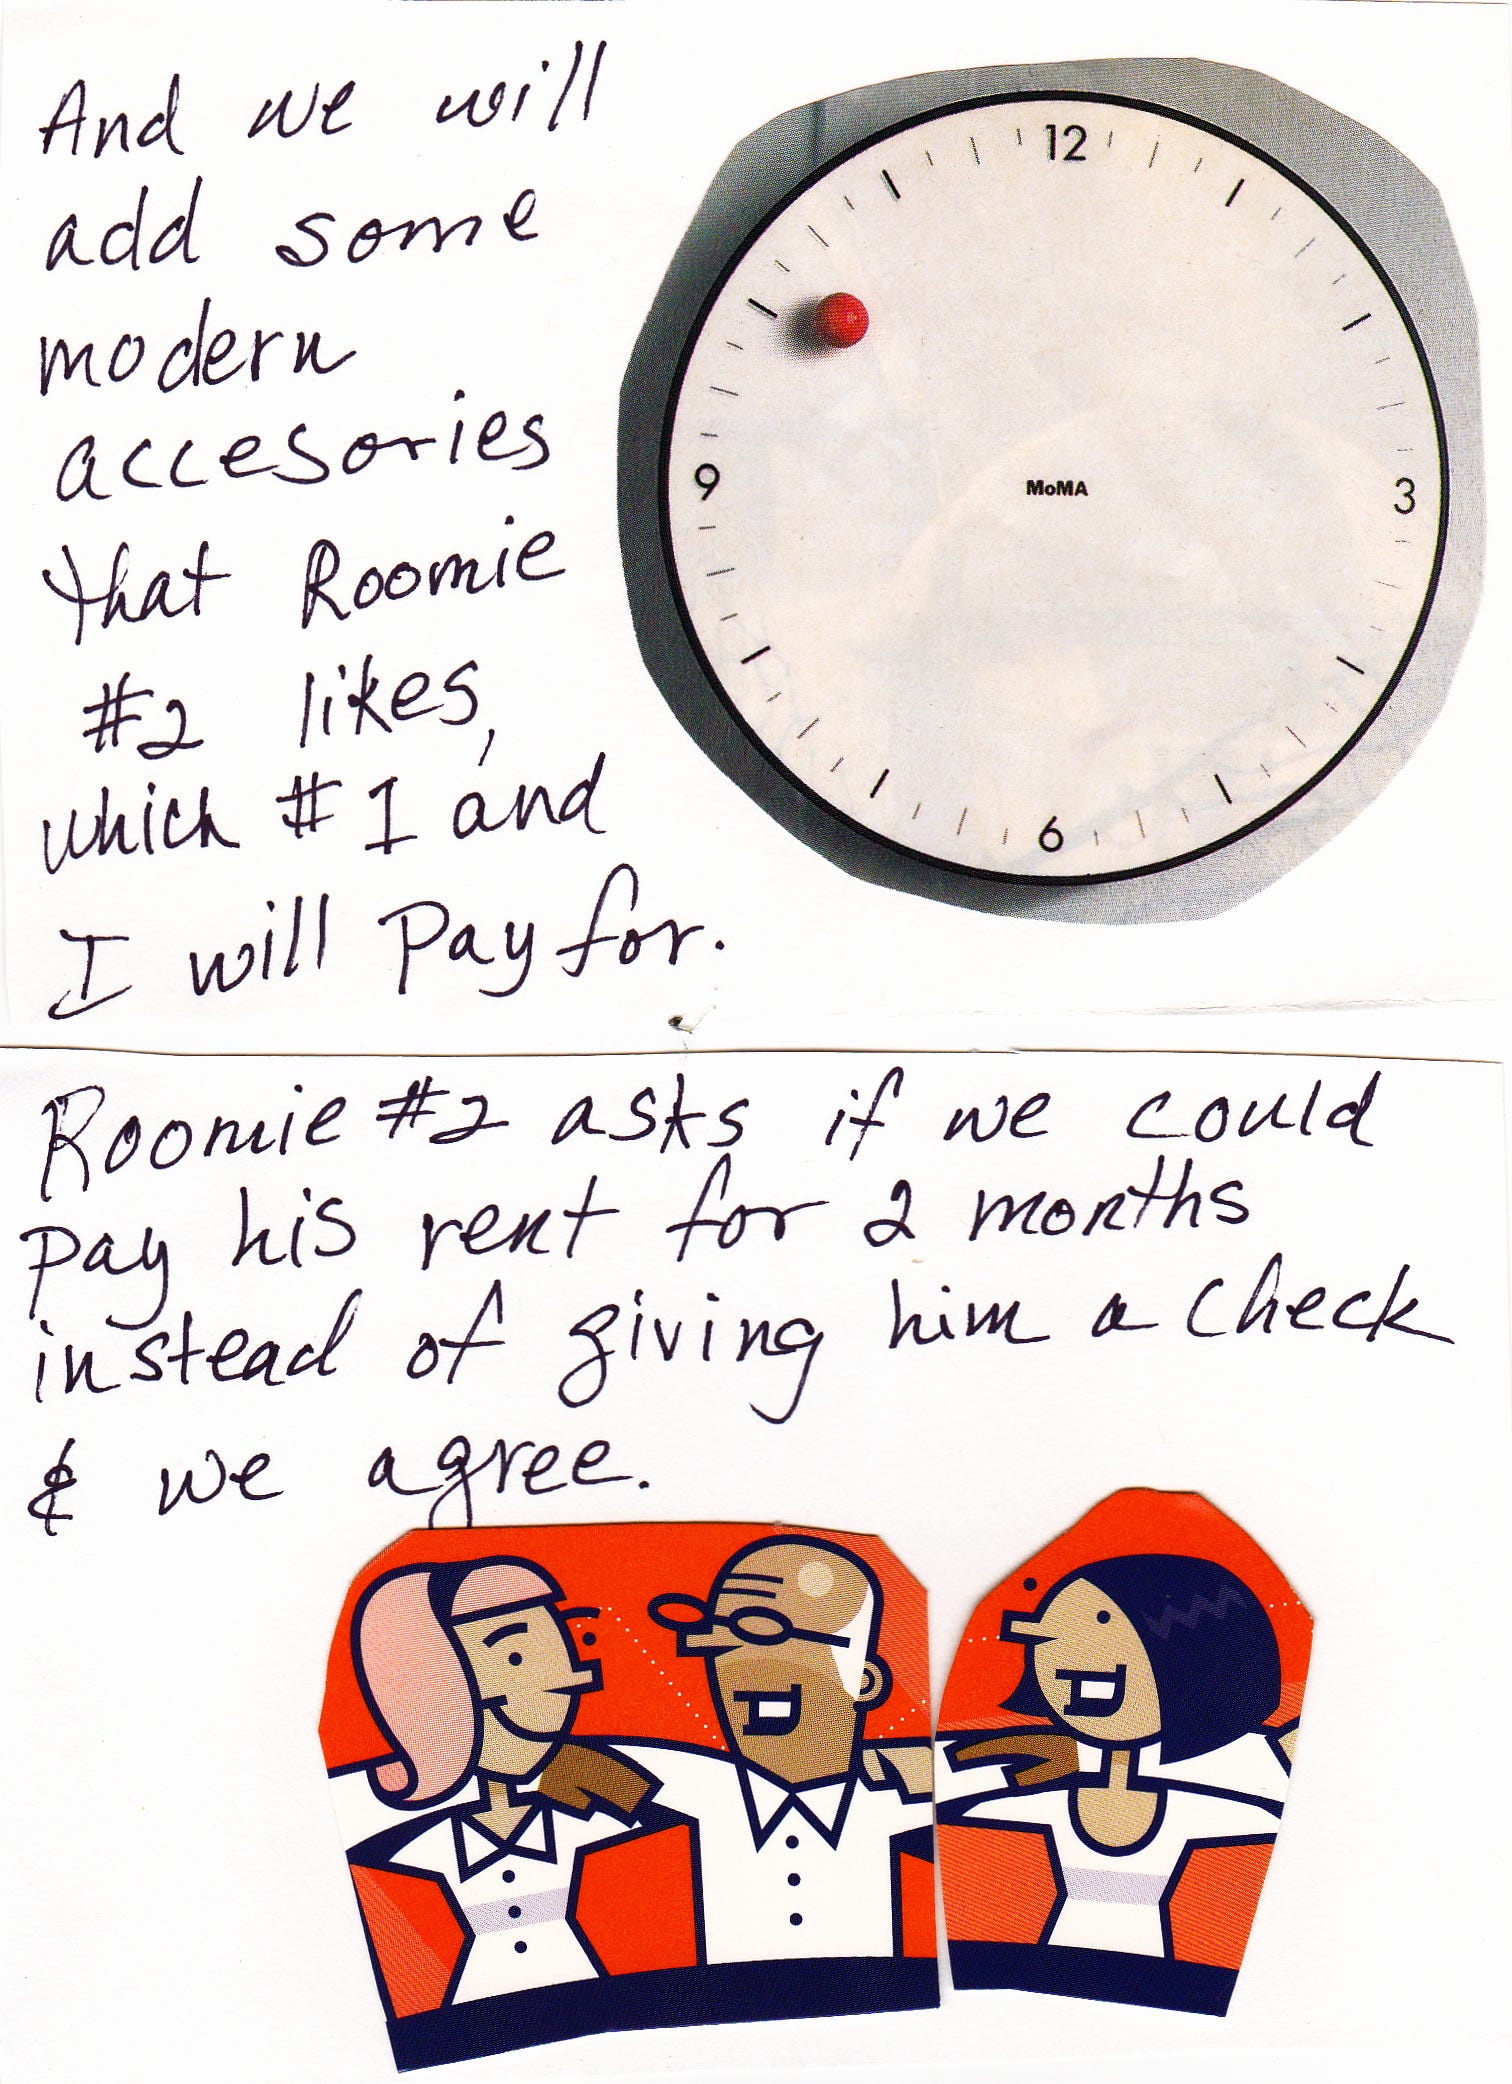 And we will
add some
modern
accesories
that Roomie
#2 likes,
which #1 and
I will Pay for.
12
9
MoMA
3
6
Roomie #2 asks if we could
Pay his rent for 2 months
instead of giving him a check
& we agree.